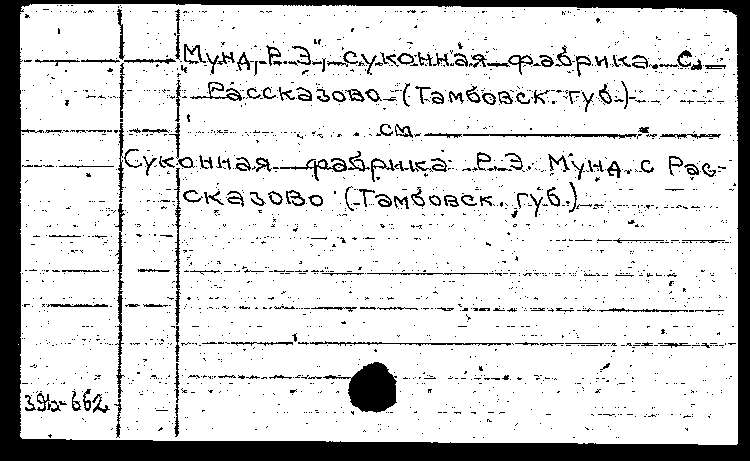 "Мунд, Р. Э.", суконная фабрика. с.
Рассказово (Тамбовск. губ.)
см.
Суконная фабрика Р. Э. Мунд. с Рас-
сказово (Тамбовск. губ.)